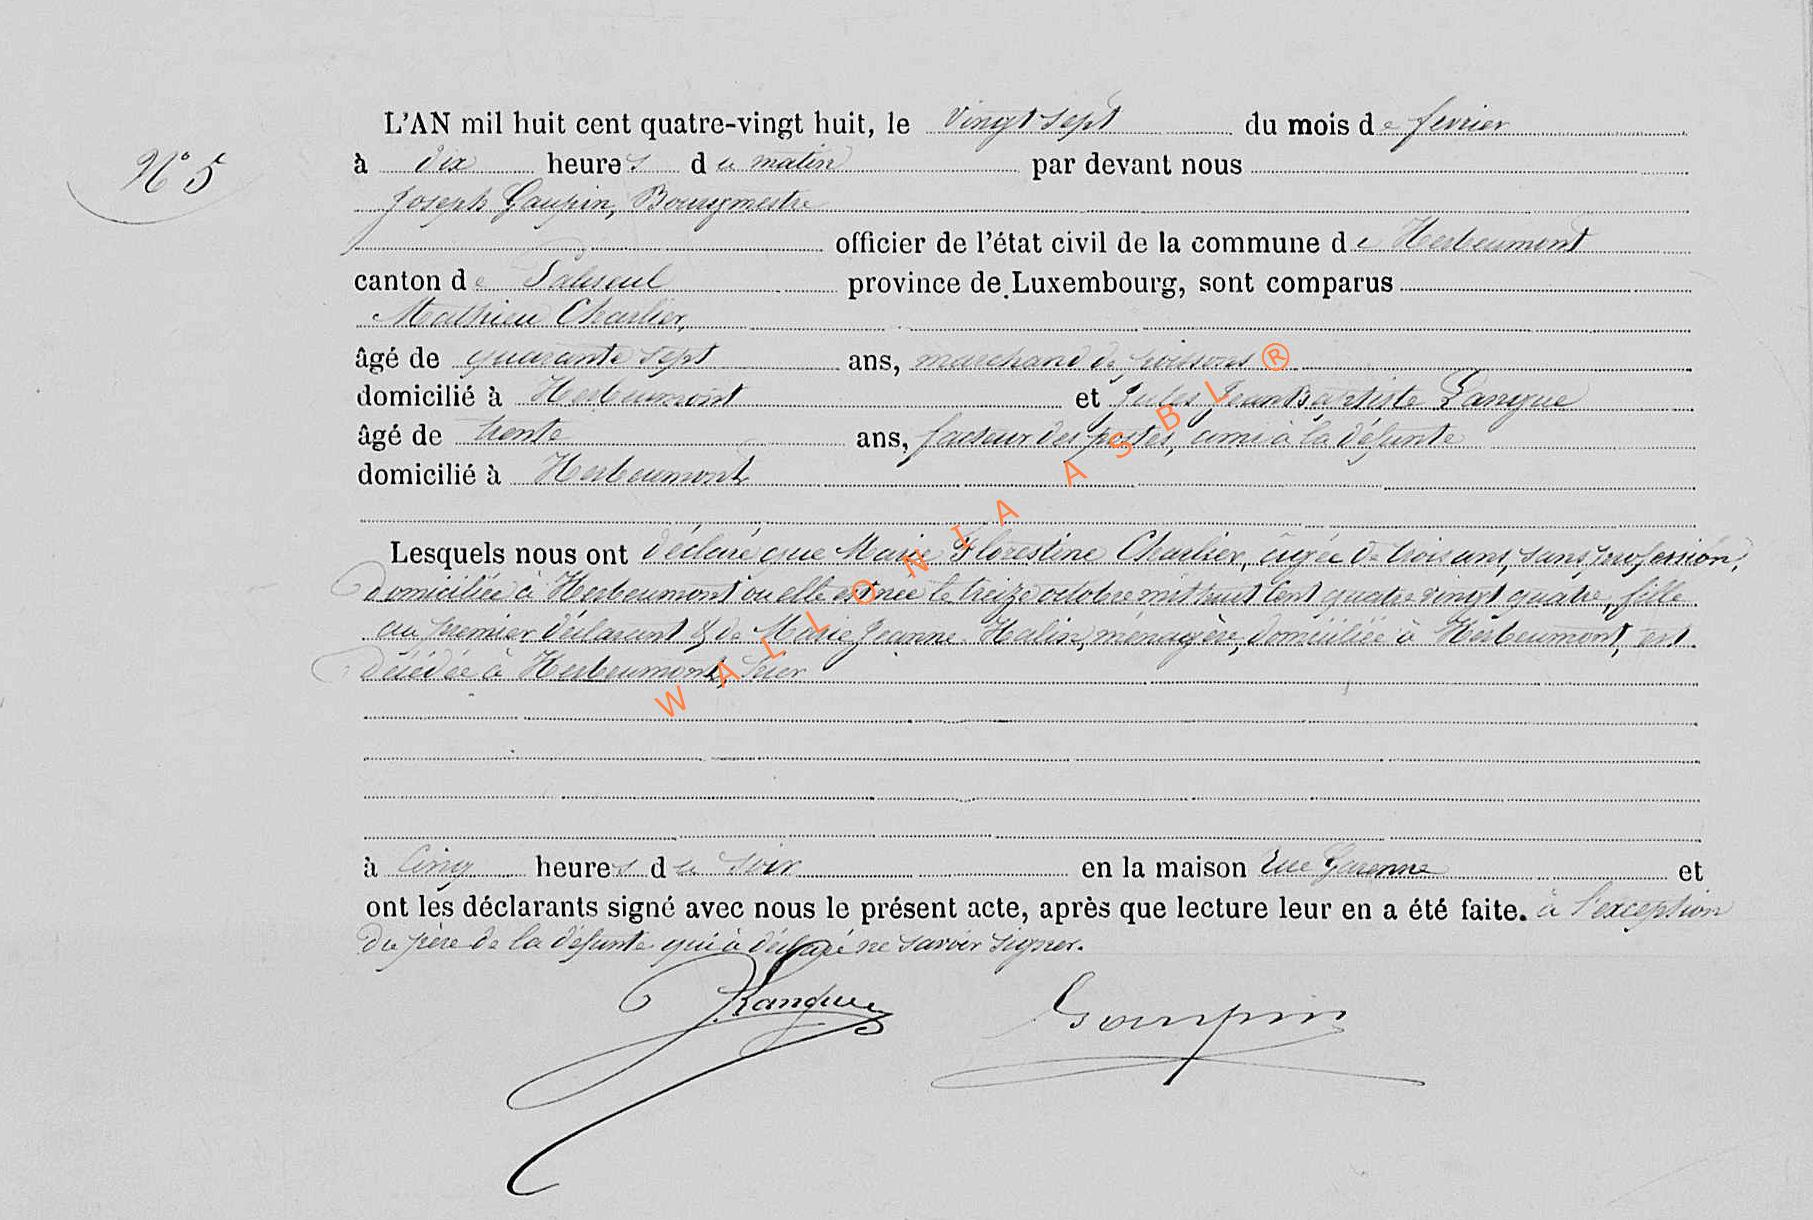 N° 5
L'AN mil huit cent quatre-vingt huit, le vingt sept du mois de fevrier
à dix heures du matin par devant nous
Joseph Goupin, Bourgmestre
officier de l'état civil de la commune de Herbeumont
canton de Paliseul province de Luxembourg, sont comparus
Mathieu Charlier,
âgé de quarante sept ans, marchand de poissons
domicilié à Herbeumont et Jules Jean Baptiste Langue
âgé de trente ans, facteur des postes, ami à la défunte
domicilié à Herbeumont
Lesquels nous ont déclaré que Marie Florestine Charlier, âgée de trois ans, sans profession,
domiciliée à Herbeumont où elle est née le treize octobre mil huit cent quatre vingt quatre, fille
au premier déclarant & de Marie Jeanne Halin, ménagère, domiciliée à Herbeumont, est
décédée à Herbeumont, hier
à cinq heures du soir en la maison rue Garenne et
ont les déclarants signé avec nous le présent acte, après que lecture leur en a été faite. à l'exception
du père de la défunte qui a déclaré ne savoir signer.
Langue Goupin
WALLONIA ASBL ®